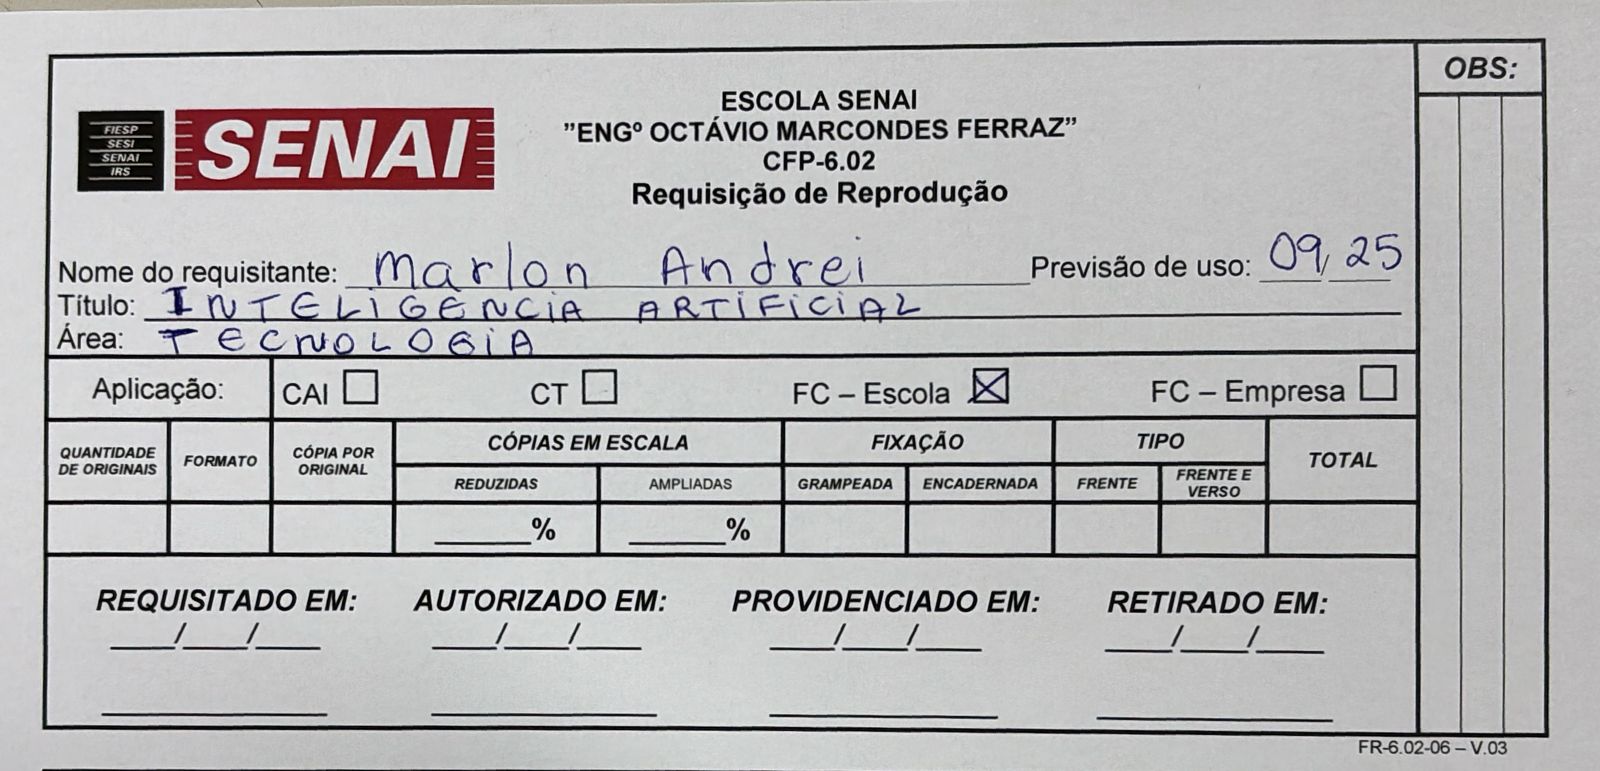 OBS:
FIESP
SESI
SENAI
IRS
SENAI
ESCOLA SENAI
”ENGº OCTÁVIO MARCONDES FERRAZ”
CFP-6.02
Requisição de Reprodução
Nome do requisitante: Marlon Andrei Previsão de uso: 09/25
Título: INTELIGENCIA ARTIFICIAL
Área: TECNOLOGIA
Aplicação: CAI CT FC – Escola FC – Empresa
QUANTIDADE DE ORIGINAIS FORMATO CÓPIA POR ORIGINAL CÓPIAS EM ESCALA FIXAÇÃO TIPO TOTAL
REDUZIDAS AMPLIADAS GRAMPEADA ENCADERNADA FRENTE FRENTE E VERSO
______% ______%
REQUISITADO EM: AUTORIZADO EM: PROVIDENCIADO EM: RETIRADO EM:
___/___/___ ___/___/___ ___/___/___ ___/___/___
FR-6.02-06 – V.03